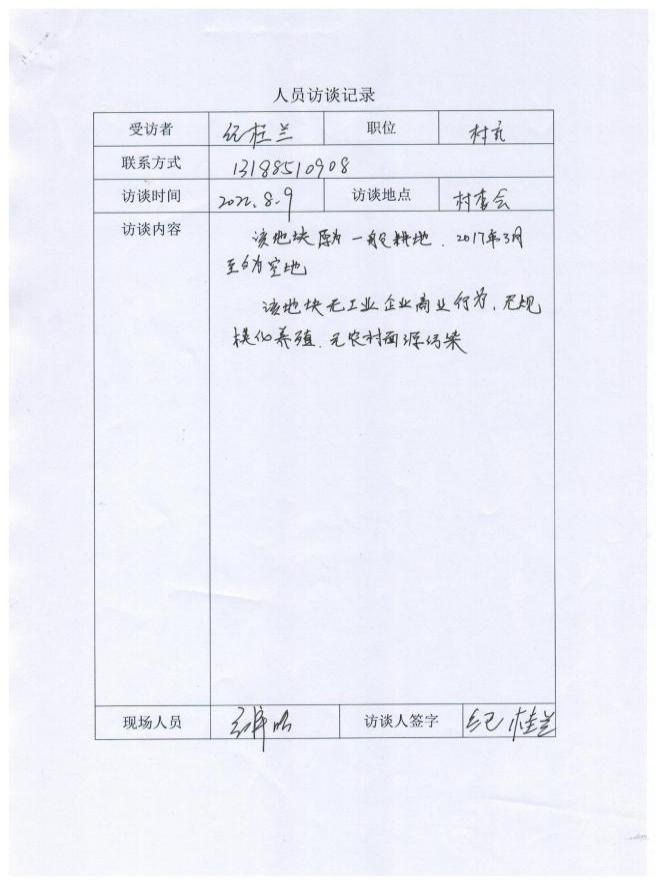 人员访谈记录
受访者 纪桂兰 职位 村主
联系方式 13188510908
访谈时间 2022.8.9 访谈地点 村委会
访谈内容
该地块原为一般耕地，2017年3月
至今为空地
该地块无工业企业商业行为，无规
模化养殖、无农村面源污染
现场人员 访谈人签字 纪桂兰